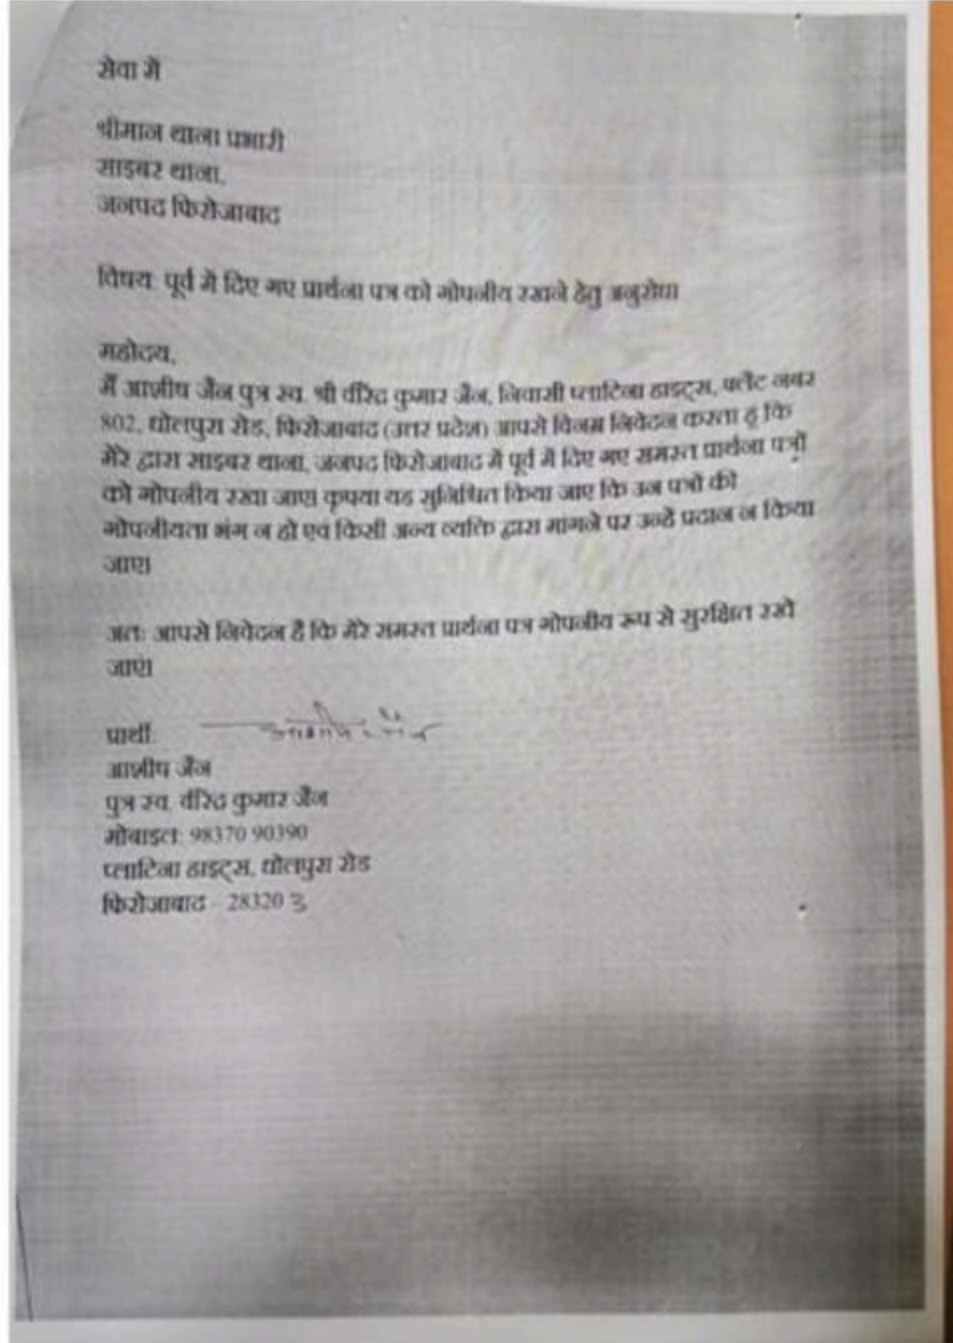 सेवा में
श्रीमान थाना प्रभारी
साइबर थाना,
जनपद फिरोजाबाद
विषय: पूर्व में दिए गए प्रार्थना पत्र को गोपनीय रखने हेतु अनुरोध
महोदय,
मैं आशीष जैन पुत्र स्व. श्री वीरेंद्र कुमार जैन, निवासी प्लाटिना हाइट्स, फ्लैट नंबर
802, धोलपुरा रोड, फिरोजाबाद (उत्तर प्रदेश) आपसे विनम्र निवेदन करता हूं कि
मेरे द्वारा साइबर थाना, जनपद फिरोजाबाद में पूर्व में दिए गए समस्त प्रार्थना पत्रों
को गोपनीय रखा जाए। कृपया यह सुनिश्चित किया जाए कि उन पत्रों की
गोपनीयता भंग न हो एवं किसी अन्य व्यक्ति द्वारा मांगने पर उन्हें प्रदान न किया
जाए।
अतः आपसे निवेदन है कि मेरे समस्त प्रार्थना पत्र गोपनीय रूप से सुरक्षित रखे
जाएं।
प्रार्थी:
आशीष जैन
पुत्र स्व. वीरेंद्र कुमार जैन
मोबाइल: 98370 90390
प्लाटिना हाइट्स, धोलपुरा रोड
फिरोजाबाद - 283203